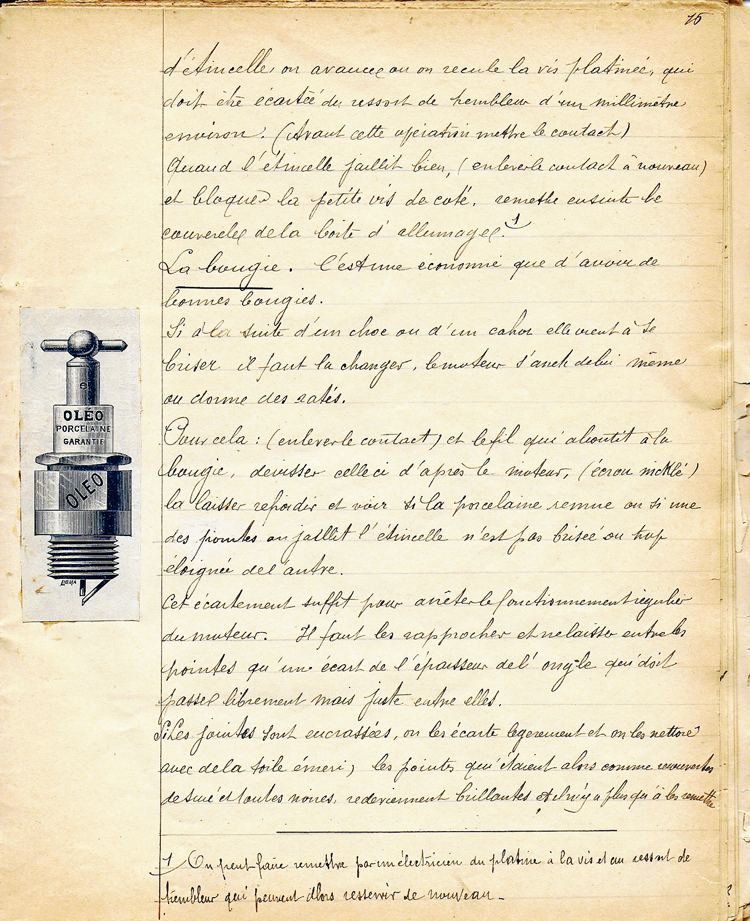 15
d'étincelle, on avance ou on recule la vis platinée, qui
doit être écartée du ressort de trembleur d'un millimètre
environ. (Avant cette opération mettre le contact)
Quand l'étincelle jaillit bien, (enlever le contact à nouveau)
et bloquer la petite vis de coté, remettre ensuite le
couvercle de la boite d'allumage. 1
La bougie. C'est une économie que d'avoir de
bonnes bougies.
Si à la suite d'un choc ou d'un cahot elle vient à se
briser il faut la changer, le moteur s'arrête de lui même
ou donne des ratés.
OLÉO
PORCELAINE
GARANTIE
OLÉO
Pour cela : (enlever le contact) et le fil qui aboutit à la
bougie, dévisser celle ci d'après le moteur, (écrou moleté)
la laisser refroidir et voir si la porcelaine remue ou si une
des pointes ou jaillit l'étincelle n'est pas brisée ou trop
éloignée de l'autre.
Cet écartement suffit pour arrêter le fonctionnement régulier
du moteur. Il faut les rapprocher et ne laisser entre les
pointes qu'une écart de l'épaisseur de l'ongle qui doit
passer librement mais juste entre elles.
Si les pointes sont encrassées, on les écarte legerement et on les nettoie
avec de la toile émeri, les pointes qui étaient alors comme recouvertes
de suie et toutes noires, redeviennent brillantes et il n'y a plus qu'à les remettre
1 On peut faire remettre par un électricien du platine à la vis et au ressort de
trembleur qui peuvent alors resservir de nouveau.